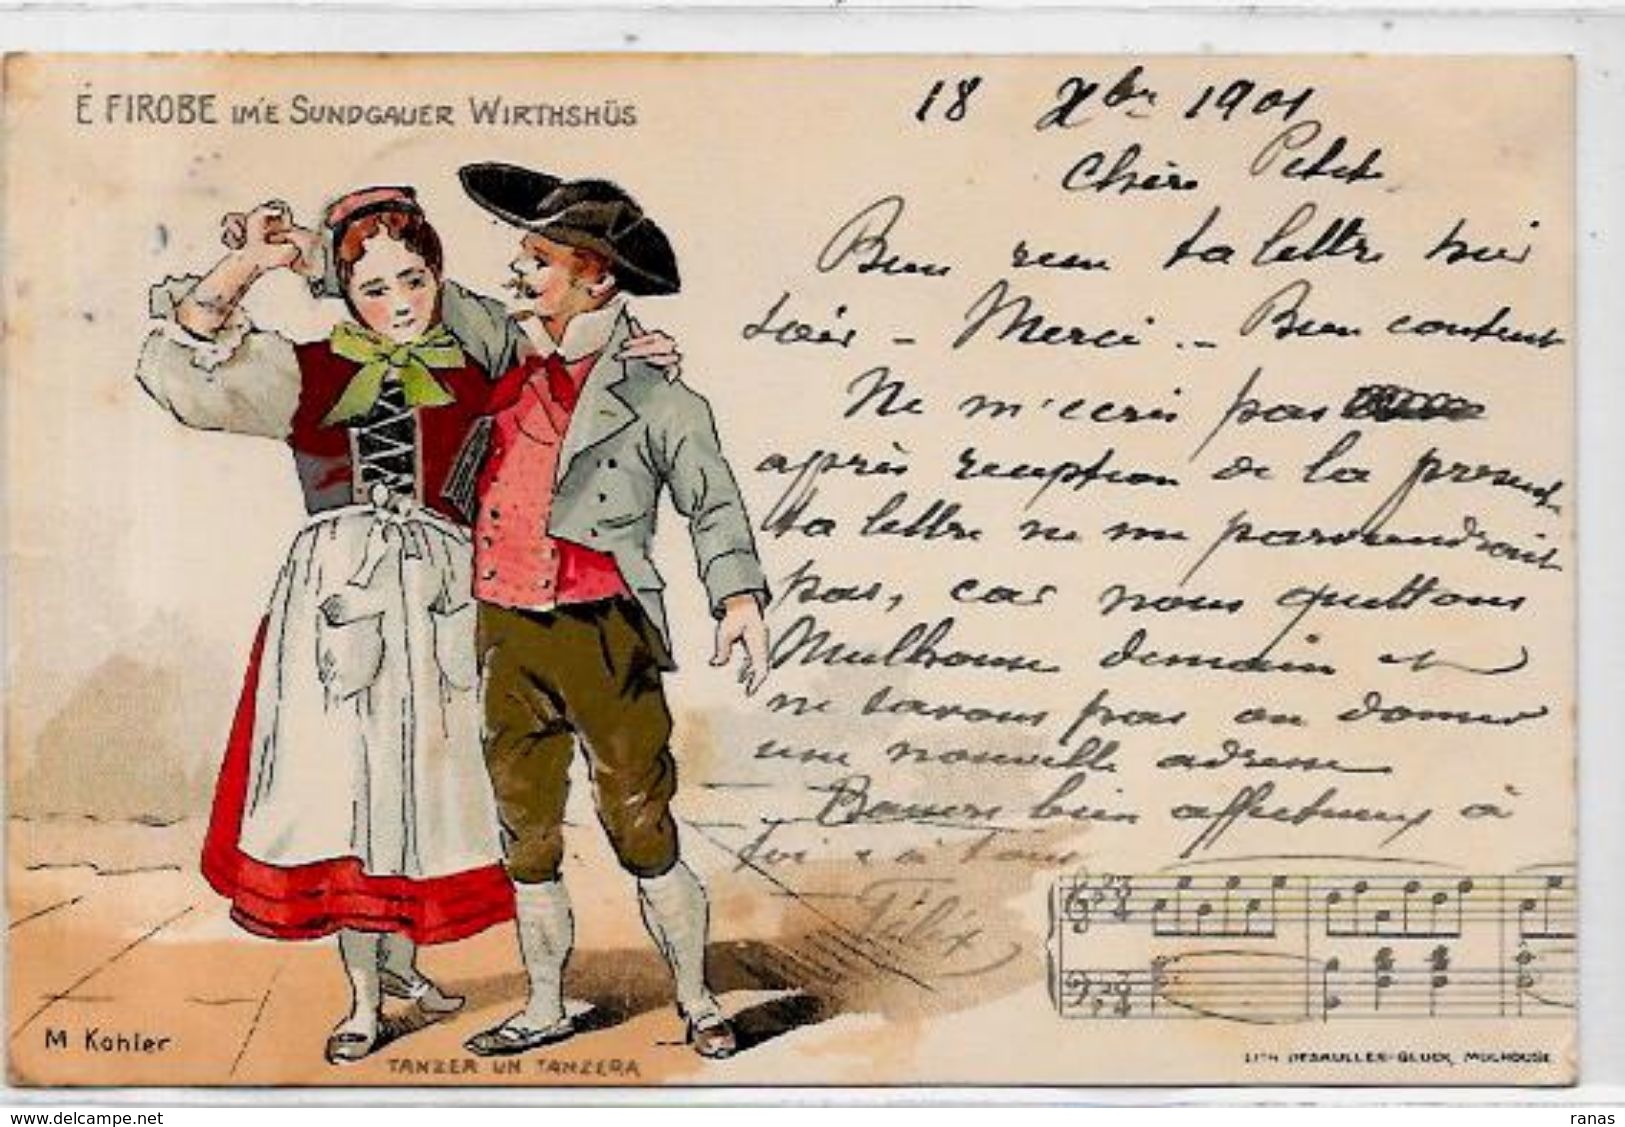 É FIROBE IM'E SUNDGAUER WIRTHSHÜS
18 Xbre 1901
Chère Petite
Bien reçu ta lettre hier
soir - Merci - Bien content
Ne m'ecris pas
après reception de la present
ta lettre ne me parviendrait
pas, car nous quittons
Mulhouse demain et
ne savons pas ou donner
une nouvelle adresse
Baisers bien affectueux à
toi & à tous
Félix
M Kohler
TANZER UN TANZERA
LITH DESAULLES-GLUCK, MULHOUSE
delcampe.net
ranas